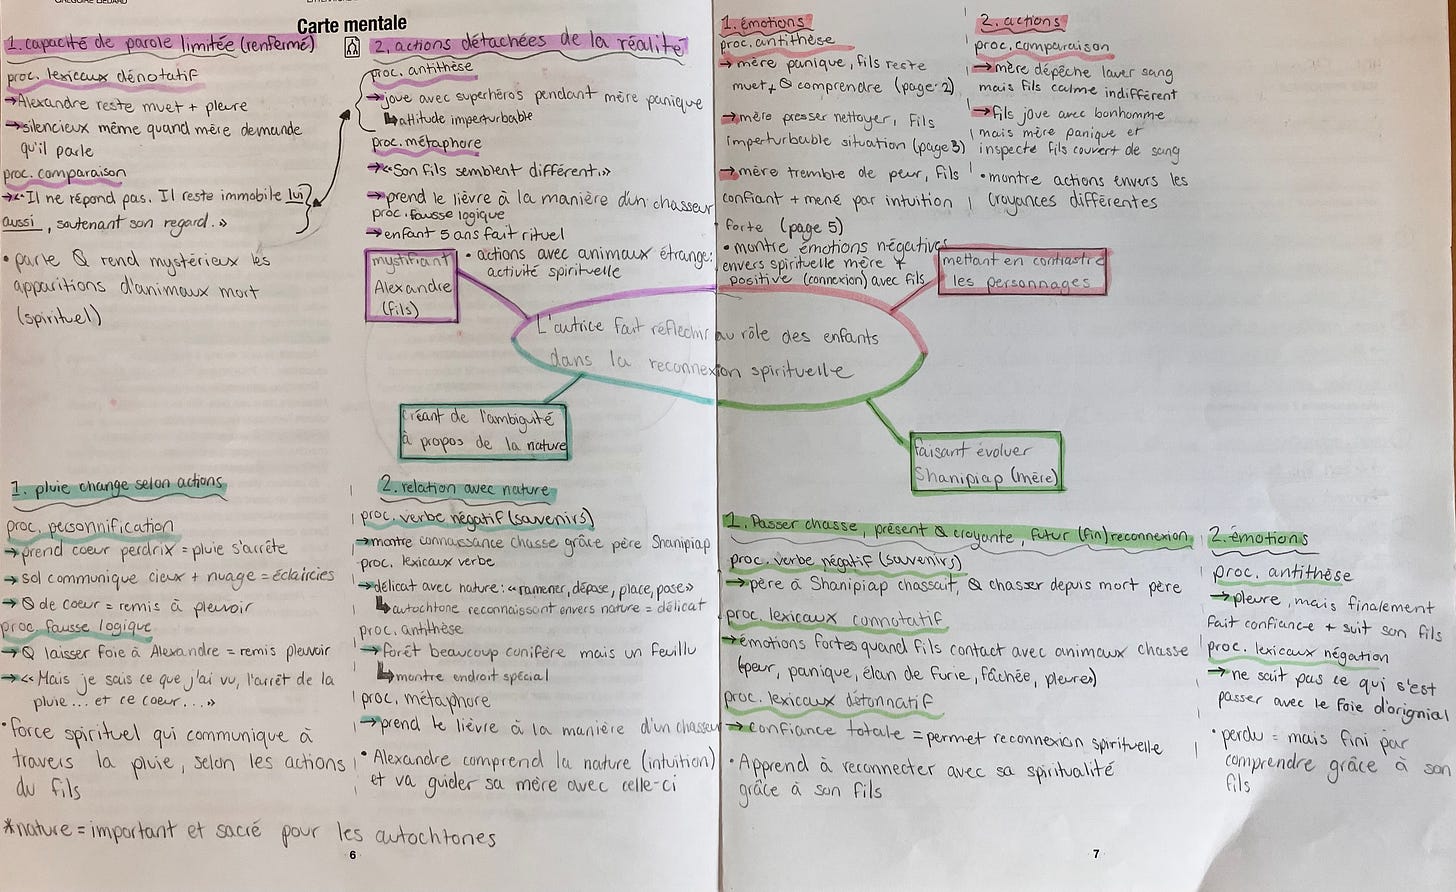 Carte mentale
1. capacité de parole limitée (renfermé)
proc. lexicaux dénotatif
→Alexandre reste muet + pleure
→silencieux même quand mère demande
qu'il parle
proc. comparaison
→«Il ne répond pas. Il reste immobile lui
aussi, soutenant son regard.»
• parle Q rend mystérieux les
apparitions d'animaux mort
(spirituel)
2. actions détachées de la réalité
proc. antithèse
→joue avec superhéros pendant mère panique
↳attitude imperturbable
proc. métaphore
→«Son fils semblent différent.»
→prend le lièvre à la manière d'un chasseur
proc. fausse logique
→enfant 5 ans fait rituel
• actions avec animaux étrange:
activité spirituelle
mystifiant
Alexandre
(fils)
1. émotions
proc. antithèse
→mère panique, fils reste
muet, Q comprendre (page 2)
→mère presser nettoyer, fils
imperturbable situation (page 3)
→mère tremble de peur, fils
confiant + mené par intuition
forte (page 5)
• montre émotions négatives
envers spirituelle mère +
positive (connexion) avec fils
2. actions
proc. comparaison
→mère dépêche laver sang
mais fils calme indifférent
→fils joue avec bonhomme
mais mère panique et
inspecte fils couvert de sang
• montre actions envers les
croyances différentes
mettant en contraste
les personnages
L'autrice fait réfléchir au rôle des enfants
dans la reconnexion spirituelle
créant de l'ambiguité
à propos de la nature
faisant évoluer
Shanipiap (mère)
1. pluie change selon actions
proc. personnification
→prend coeur perdrix = pluie s'arrête
→sol communique cieux + nuage = éclaircies
→Q de coeur = remis à pleuvoir
proc. fausse logique
→Q laisser foie à Alexandre = remis pleuvoir
→«Mais je sais ce que j'ai vu, l'arrêt de la
pluie... et ce coeur...»
• force spirituel qui communique à
travers la pluie, selon les actions
du fils
*nature = important et sacré pour les autochtones
2. relation avec nature
proc. verbe négatif (souvenirs)
→montre connaissance chasse grâce père Shanipiap
proc. lexicaux verbe
→délicat avec nature: «ramener, dépose, place, pose»
↳autochtone reconnaissant envers nature = délicat
proc. antithèse
→forêt beaucoup conifère mais un feuillu
↳montre endroit spécial
proc. métaphore
→prend le lièvre à la manière d'un chasseur
• Alexandre comprend la nature (intuition)
et va guider sa mère avec celle-ci
6
1. Passer chasse, présent Q croyante, futur (fin) reconnexion
proc. verbe négatif (souvenirs)
→père à Shanipiap chassait, Q chasser depuis mort père
proc. lexicaux connotatif
→émotions fortes quand fils contact avec animaux chasse
(peur, panique, élan de furie, fâchée, pleures)
proc. lexicaux détonnatif
→confiance totale = permet reconnexion spirituelle
• Apprend à reconnecter avec sa spiritualité
grâce à son fils
2. émotions
proc. antithèse
→pleure, mais finalement
fait confiance + suit son fils
proc. lexicaux négation
→ne sait pas ce qui s'est
passer avec le foie d'orignial
• perdu = mais fini par
comprendre grâce à son
fils
7